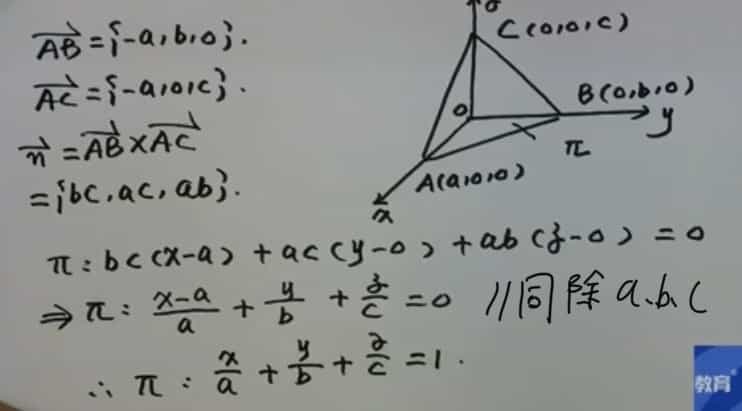 AB = {-a, b, 0}.
AC = {-a, 0, c}.
n = AB × AC
= {bc, ac, ab}.
z
C(0,0,c)
B(0,b,0)
0
y
π
A(a,0,0)
x
π: bc(x-a) + ac(y-0) + ab(z-0) = 0
⇒ π: (x-a)/a + y/b + z/c = 0 //同除 a.b.c
∴ π: x/a + y/b + z/c = 1.
教育